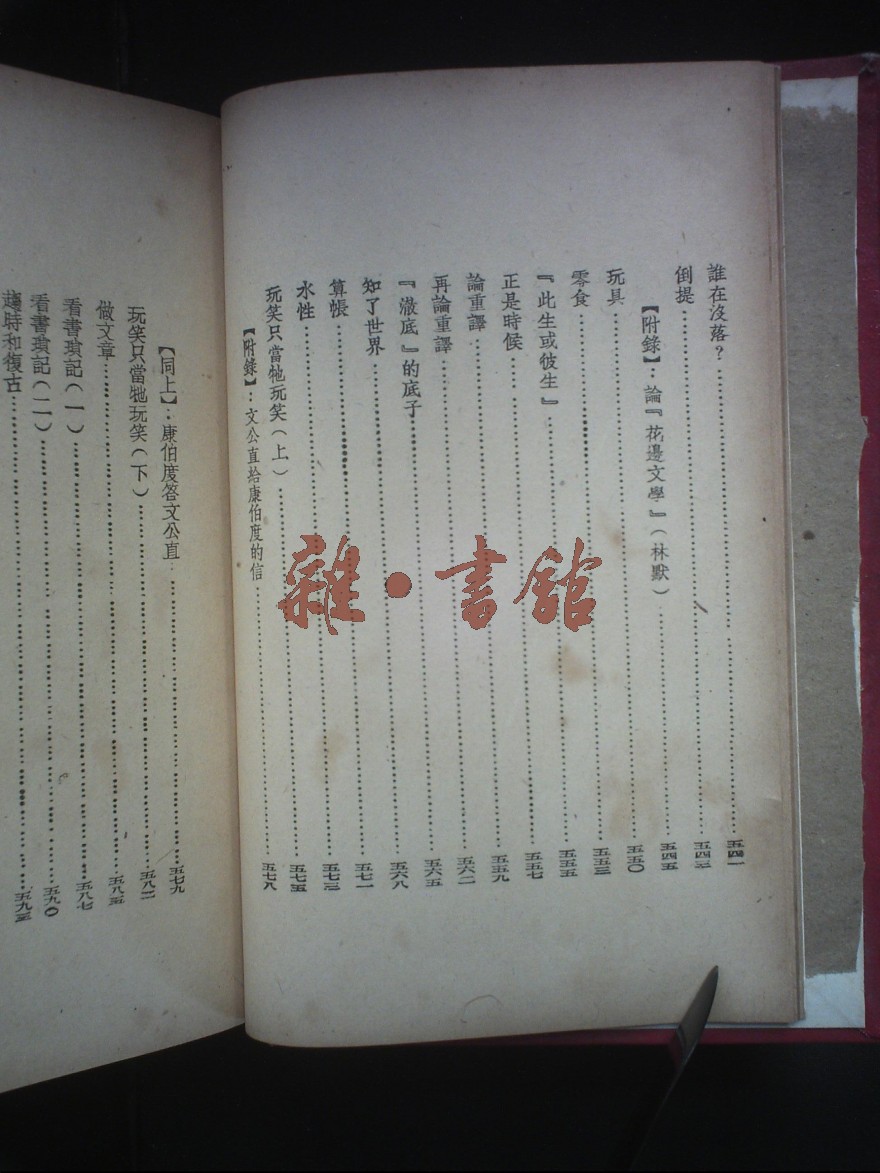 誰在沒落?……五四一
倒提……五四三
【附錄】:論『花邊文學』(林默)……五四五
玩具……五五〇
零食……五五三
『此生或彼生』……五五五
正是時候……五五七
論重譯……五五九
再論重譯……五六二
『澈底』的底子……五六五
知了世界……五六八
算帳……五七一
水性……五七三
玩笑只當牠玩笑(上)……五七五
【附錄】:文公直給康伯度的信……五七八
【同上】:康伯度答文公直……五七九
玩笑只當牠玩笑(下)……五八二
做文章……五八五
看書瑣記(一)……五八七
看書瑣記(二)……五九〇
趨時和復古……五九三
雜·書館